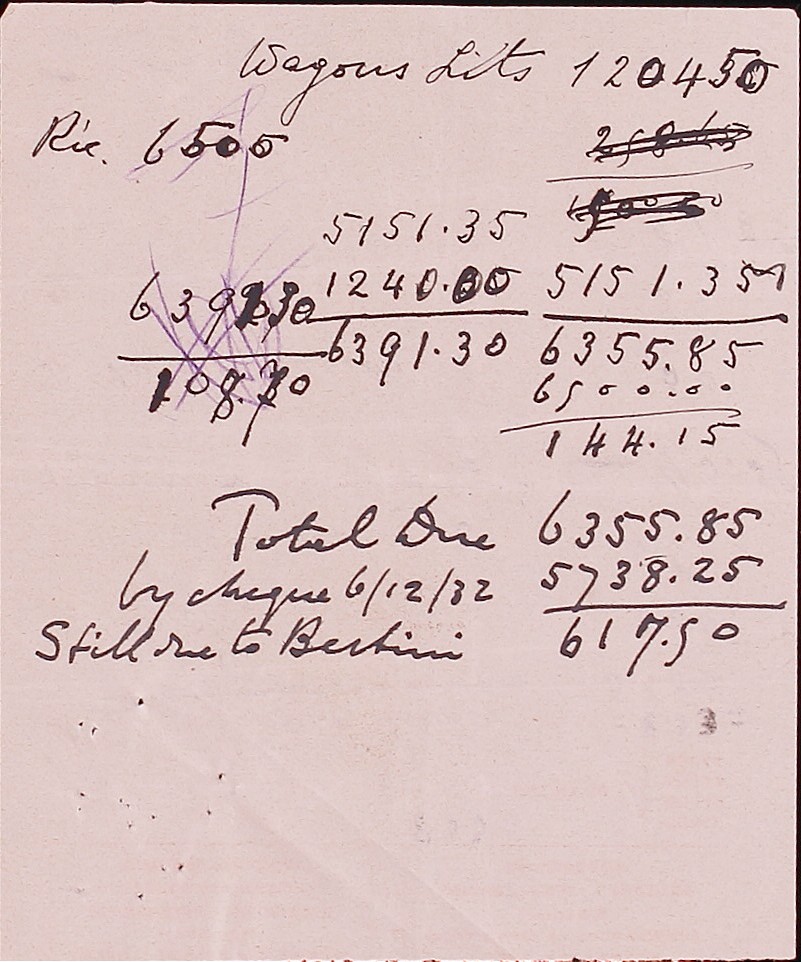 Wagons Lits 120450
Ric. 6505
5151.35
1240.00 5151.35
6391.30 6391.30 6355.85
108.70 6500.00
144.15
Total Due 6355.85
by cheque 6/12/32 5738.25
Still due to Bertini 617.50